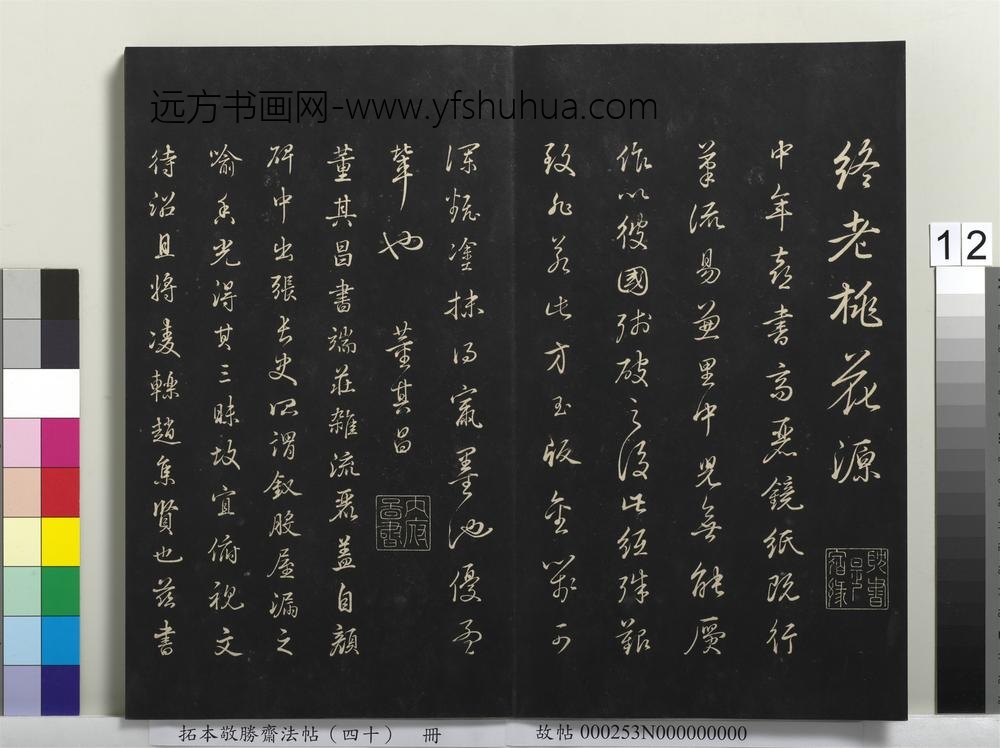 終老桃花源
中年喜書高麗鏡紙既行
筆流易兼里中兒無能贋
作以彼國殘破之後此紙殊艱
致非若此方玉版金箋可
塗抹墨池優孟
輩也 董其昌
董其昌書端莊雜流麗蓋自顏
碑中出張長史所謂釵股屋漏之
喻香光得其三昧故宜俯視文
待詔且將凌轢趙集賢也茲書
远方书画网-www.yfshuhua.com
12
拓本敬勝齋法帖(四十) 冊
故帖 000253N000000000